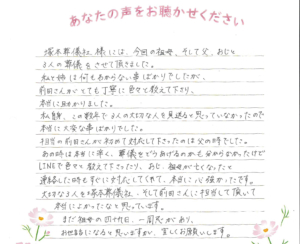 あなたの声をお聴かせください
塚本葬儀社様には、今回の祖母、そして父、おじと
3人の葬儀をさせて頂きました。
私と姉は何もわからない事ばかりでしたが、
前田さんがとても丁寧に色々と教えて下さり、
本当に助かりました。
私自身、この数年で3人の大切な人を見送ると思っていなかったので
本当に大変な事ばかりでした。
担当の前田さんが初めて対応して下さったのは父の時でした。
あの時は本当に辛く、葬儀をどうあげるのかも分からなかったけど
LINEで色々と教えて下さったり、おじ、祖母が亡くなったと
連絡した時もすぐにきてくれて、本当に心強かったです。
大切な3人を塚本葬儀社、そして前田さんに担当して頂いて
本当によかったなと思っています。
まだ祖母の四十九日、一周忌があり、
お世話になると思いますが、宜しくお願いします。